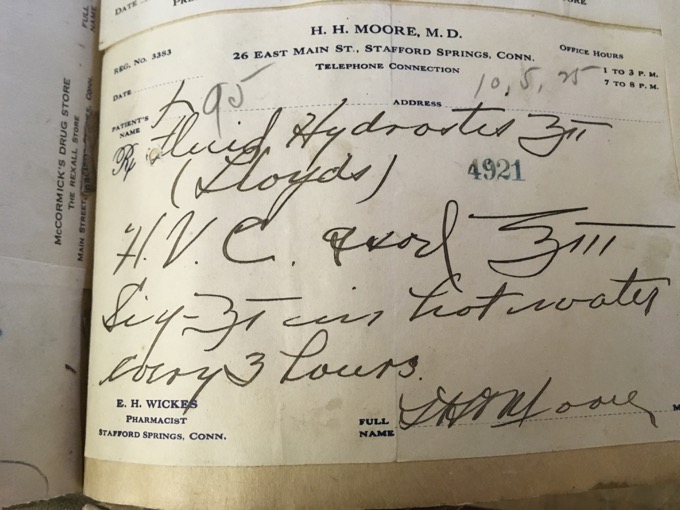 DATE
H. H. MOORE, M. D.
26 EAST MAIN ST., STAFFORD SPRINGS, CONN.
TELEPHONE CONNECTION
OFFICE HOURS
1 TO 3 P. M.
7 TO 8 P. M.
REG. NO. 3383
DATE
.95
ADDRESS
10, 5, 25
PATIENT'S
NAME
℞ Fluid Hydrastis ʒII
(Lloyds)
4921
H. V. C. ʒIII
Sig - ʒI in hot water
every 3 hours.
E. H. WICKES
PHARMACIST
STAFFORD SPRINGS, CONN.
FULL
NAME
H H Moore
M
McCORMICK'S DRUG STORE
THE REXALL STORE
MAIN STREET
FULL
NAME